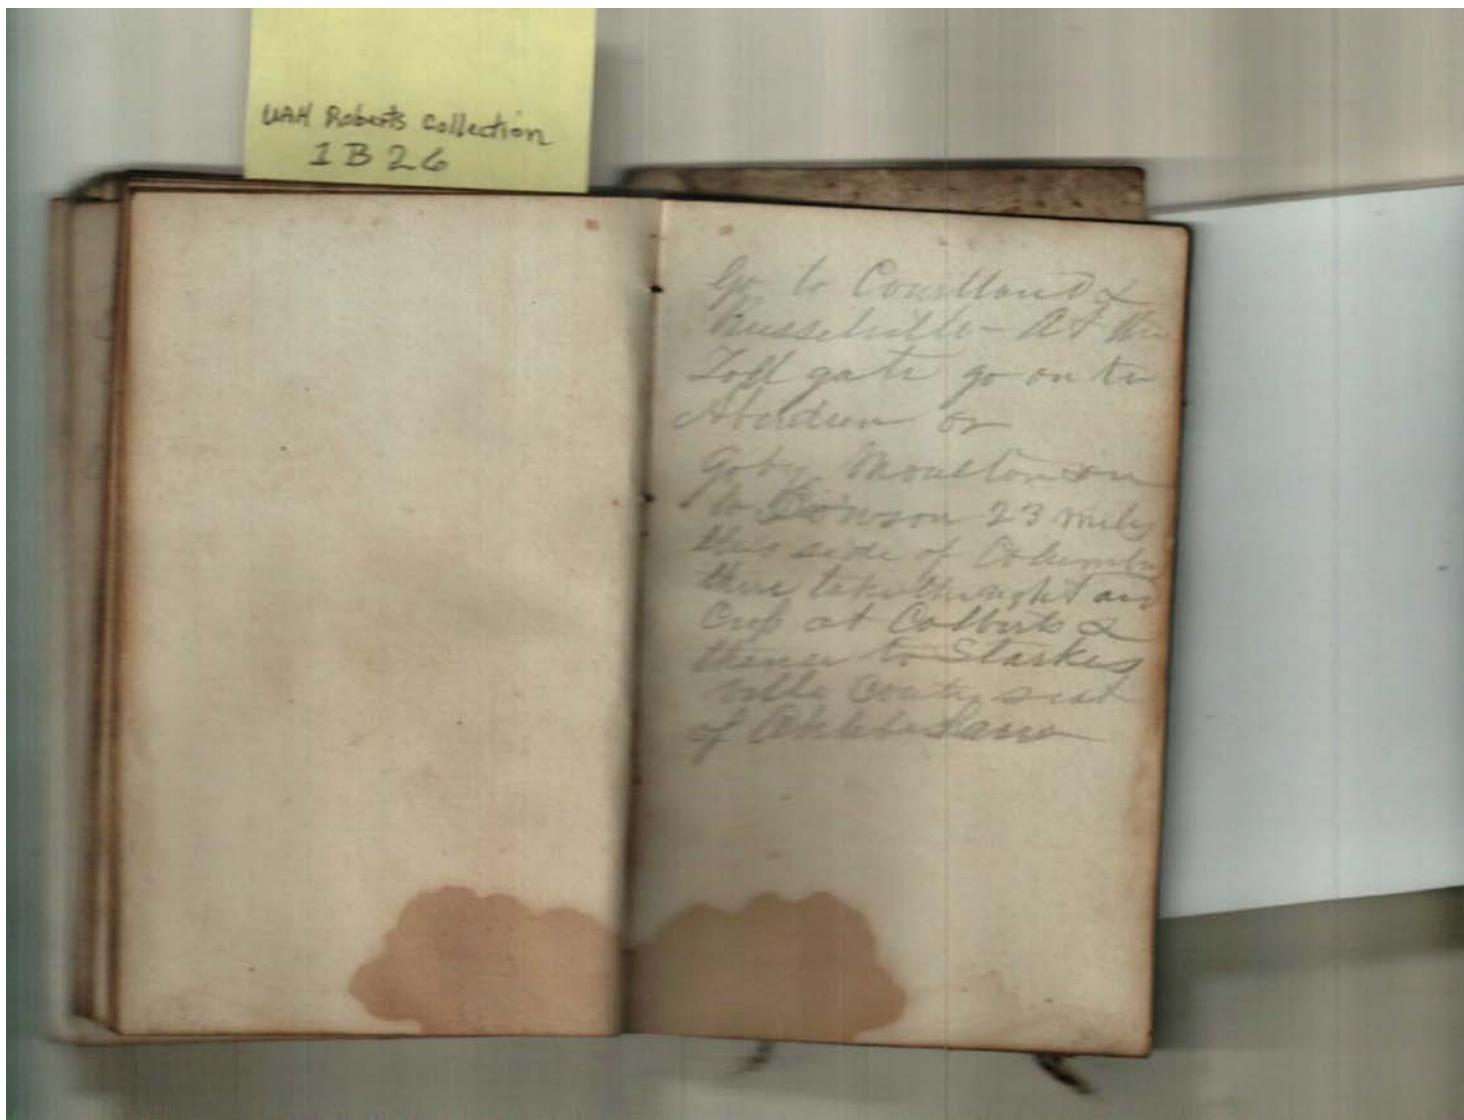 UAH Roberts Collection
1B26
Go to Courtland &
Russelville - At the
Toll gate go on to
Aberdeen or
Go by Moulton on
to 23 miles
this side of Columbu
there take the right and
Cross at Colberts &
thence to Starkes
ville County seat
of